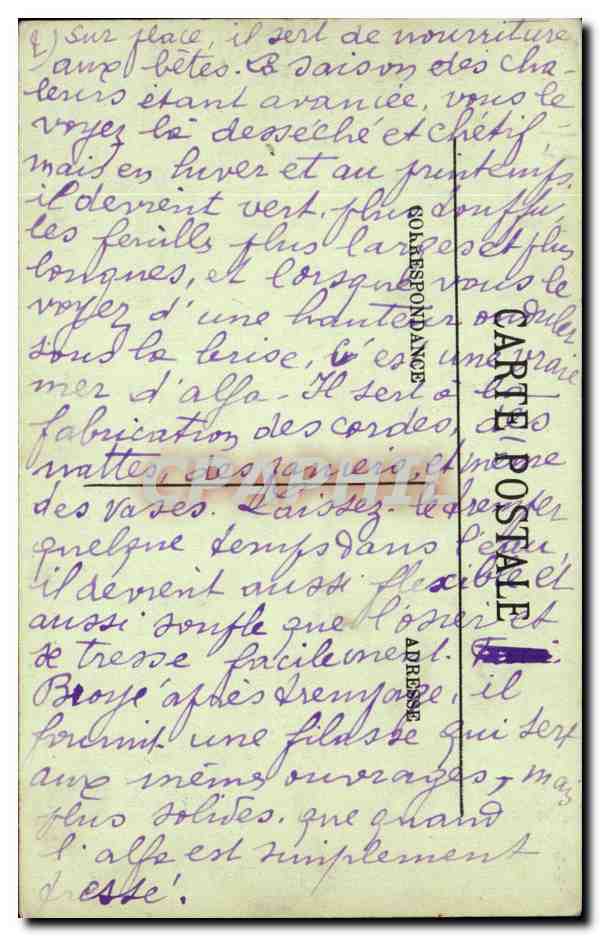 2) Sur place, il sert de nourriture
aux bêtes. La saison des cha-
leurs étant avancée, vous le
voyez là desséché et chétif,
mais en hiver et au printemps,
il devient vert, plus touffu,
les feuilles plus larges et plus
longues, et lorsque vous le
voyez d'une hauteur onduler
sous la brise, c'est une vraie
mer d'alfa. Il sert à la
fabrication des cordes, des
nattes, des paniers, et même
des vases. Laissez-le tremper
quelque temps dans l'eau,
il devient aussi flexible et
aussi souple que l'osier et
se tresse facilement.
Broyé après trempage, il
fournit une filasse qui sert
aux mêmes ouvrages, mais
plus solides, que quand
l'alfa est simplement
tressé.
CARTE POSTALE
CORRESPONDANCE
ADRESSE
CPAPHIL